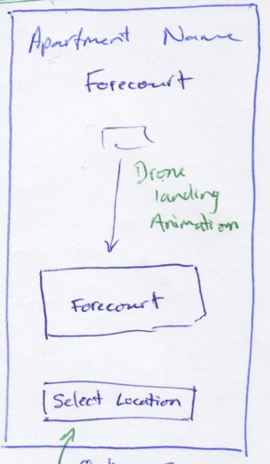 Apartment Name
Forecourt
Drone
landing
Animation
Forecourt
Select Location